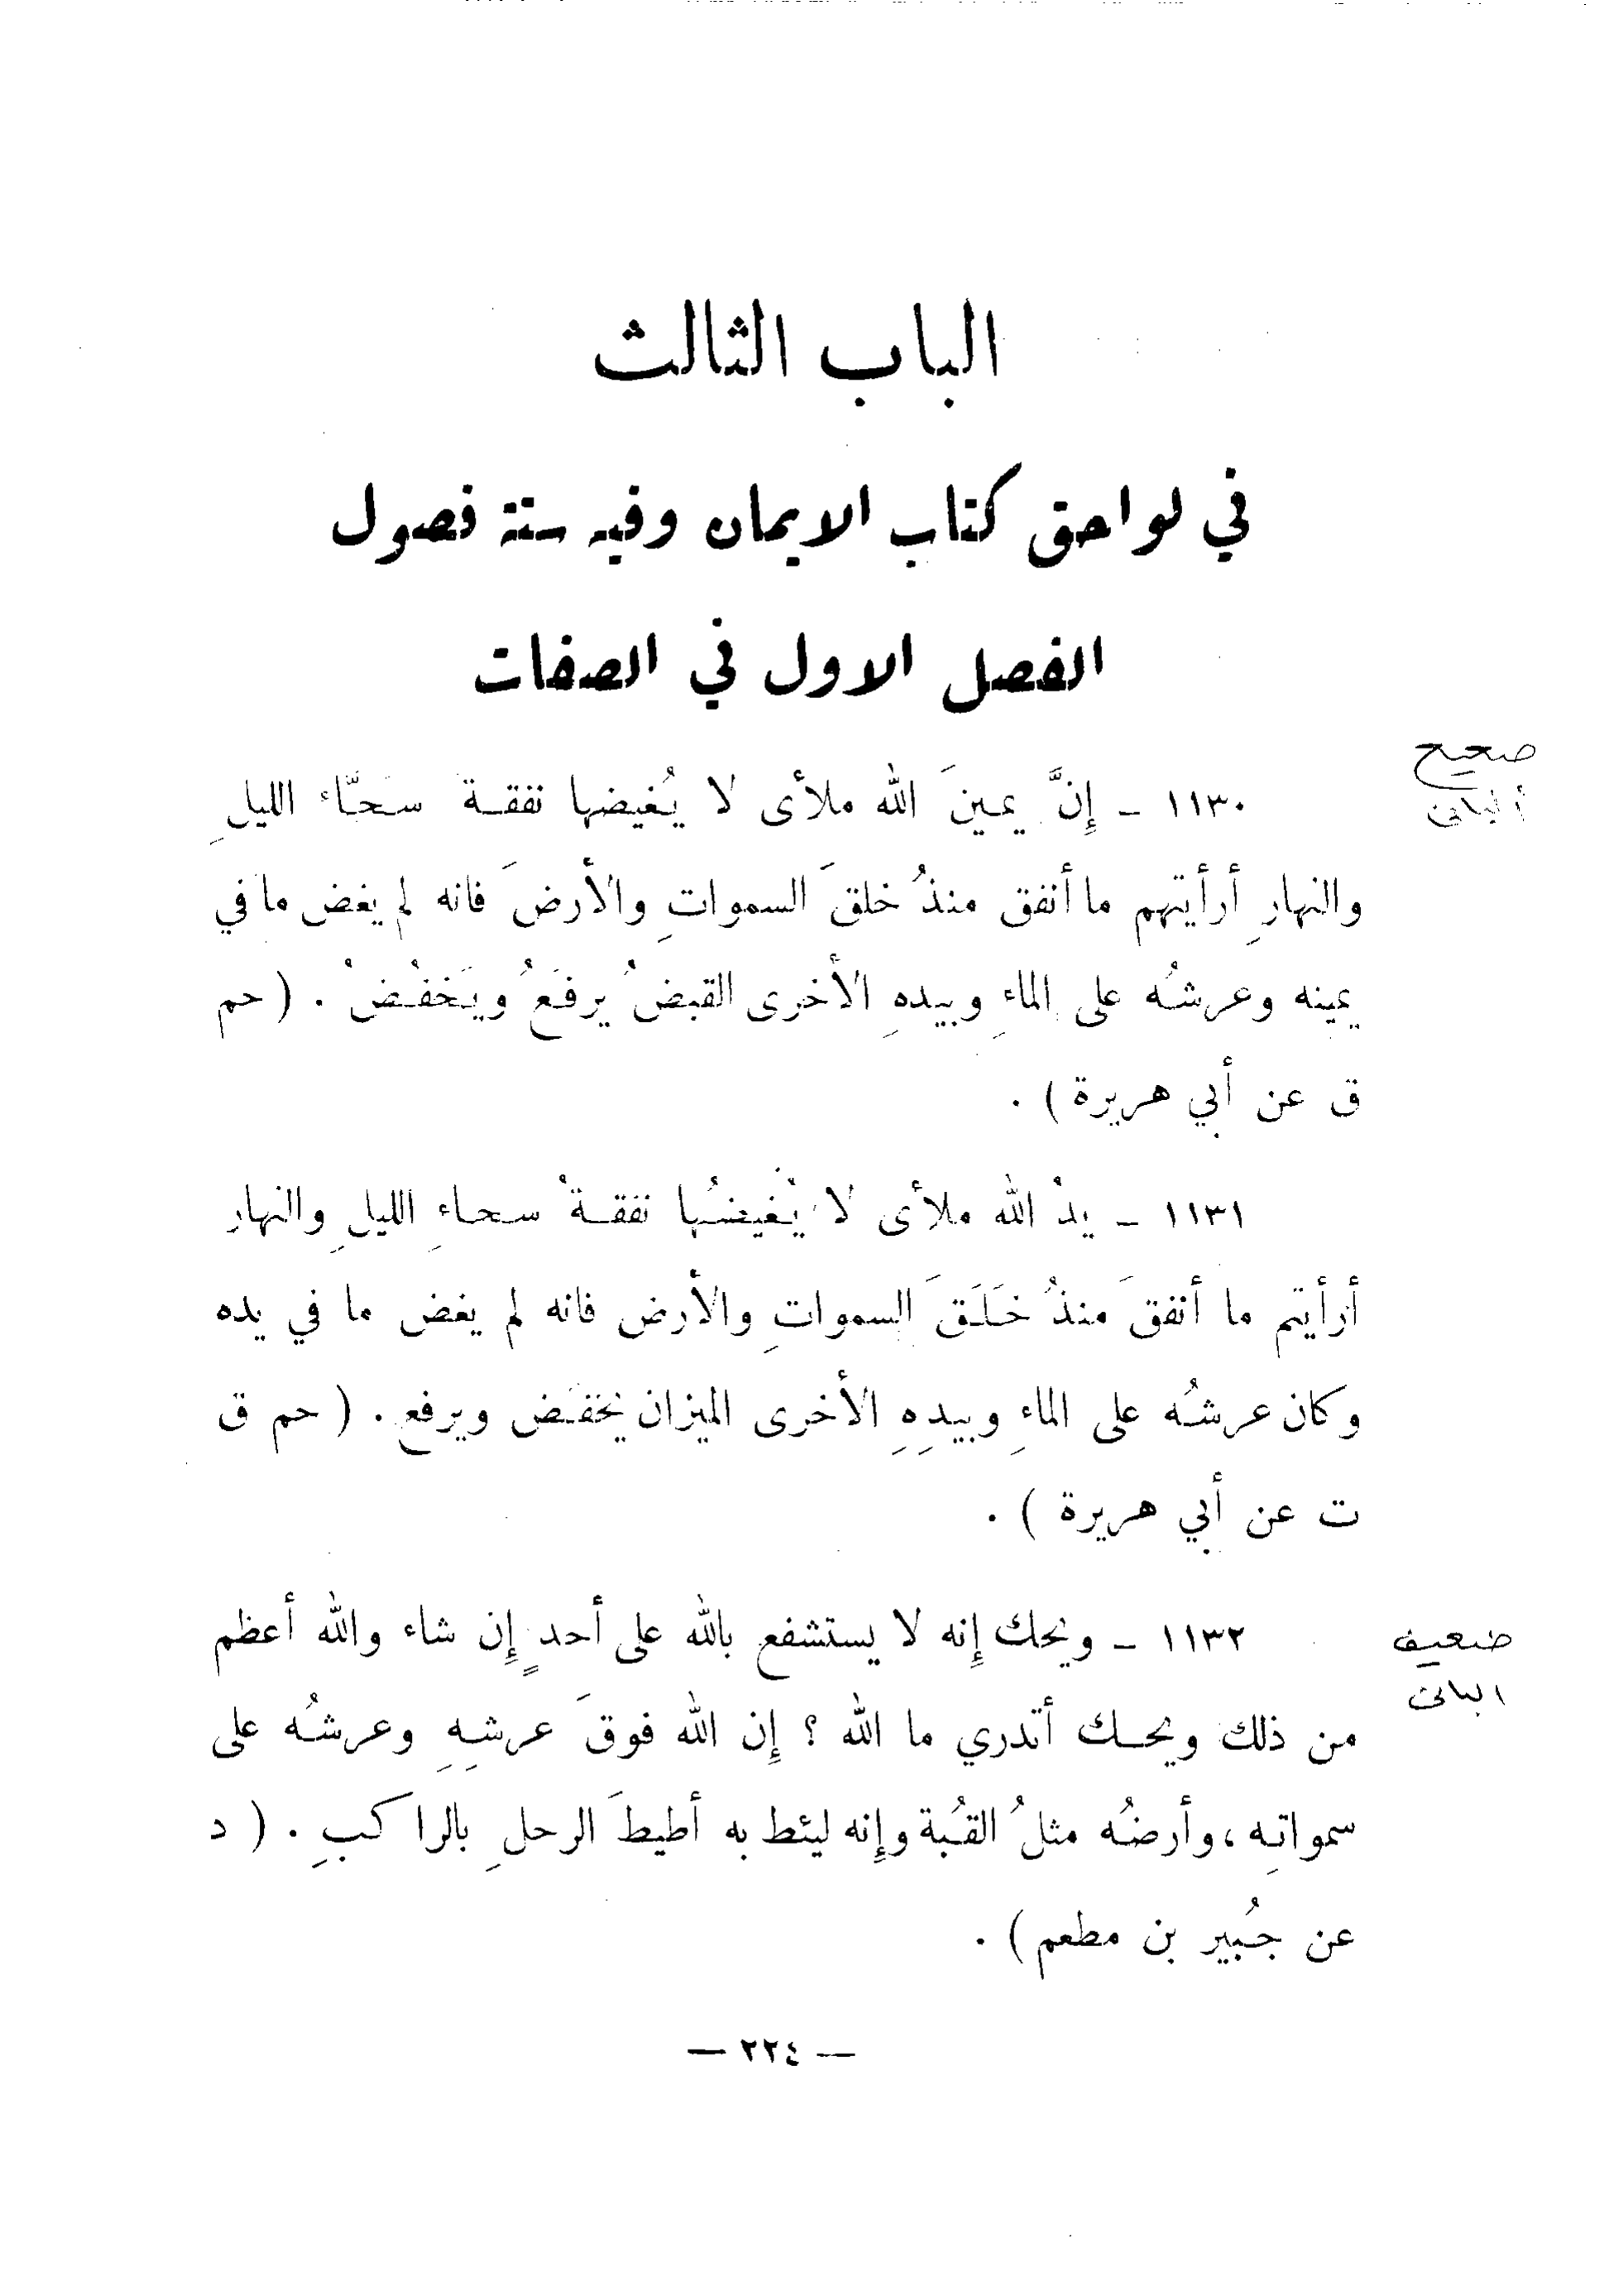 الباب الثالث
في لواحق كتاب الايمان وفيه ستة فصول
الفصل الاول في الصفات
صحيح
ألباني
١١٣٠ ـ إِنَّ يمينَ الله ملأى لا يُغيضها نفقـة سحّاء الليلِ
والنهارِ أرأيتهم ما أنفق منذُ خلقَ السمواتِ والأرضَ فانه لم يغض ما في
يمينه وعرشُه على الماءِ وبيدهِ الأخرى القبضُ يرفَعُ ويَخفُضُ . ( حم
ق عن أبي هريرة ) .
١١٣١ ـ يدُ الله ملأى لا يُغيضُها نفقـةٌ سحاءِ الليلِ والنهار
أرأيتم ما أنفقَ منذُ خَلَقَ السمواتِ والأرض فانه لم يغض ما في يده
وكان عرشُه على الماءِ وبيدِهِ الأخرى الميزان يخفَض ويرفع . ( حم ق
ت عن أبي هريرة ) .
ضعيف
الباني
١١٣٢ ـ ويحك إِنه لا يستشفع بالله على أحدٍ إِن شاء والله أعظم
من ذلك ويحـك أتدري ما الله ؟ إِن الله فوقَ عرشِهِ وعرشُه على
سمواتِه ، وأرضُه مثلُ القُبة وإِنه ليئط به أطيطَ الرحلِ بالراكبِ . ( د
عن جُبير بن مطعم ) .
— ٢٢٤ —